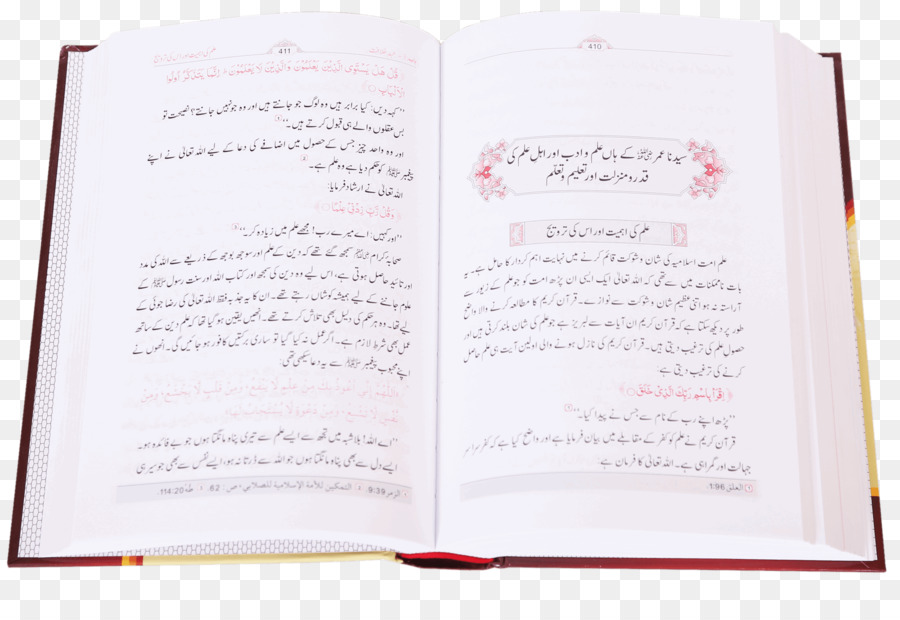 410
سیدنا عمر رضی اللہ عنہ کے ہاں علم و ادب اور اہل علم کی
قدر و منزلت اور تعلیم و تعلّم
علم کی اہمیت اور اس کی ترویج
علم امت اسلامیہ کی شان و شوکت قائم کرنے میں نہایت اہم کردار کا حامل ہے۔ یہ
بات ناممکنات میں سے تھی کہ اللہ تعالیٰ ایک ایسی ان پڑھ امت کو جو علم کے زیور سے
آراستہ نہ ہو اتنی عظیم شان و شوکت سے نوازے۔ قرآن کریم کا مطالعہ کرنے والا واضح
طور پر دیکھ سکتا ہے کہ قرآن کریم ان آیات سے لبریز ہے جو علم کی شان بلند کرتی ہیں اور
حصولِ علم کی ترغیب دیتی ہیں۔ قرآن کریم کی نازل ہونے والی اولین آیت ہی علم حاصل
کرنے کی ترغیب دیتی ہے:
﴿اِقْرَاْ بِاسْمِ رَبِّكَ الَّذِيْ خَلَقَ ۝﴾
”پڑھ اپنے رب کے نام سے جس نے پیدا کیا۔“
قرآن کریم نے علم کو کفر کے مقابلے میں بیان فرمایا ہے اور واضح کیا ہے کہ کفر سراسر
جہالت اور گمراہی ہے۔ اللہ تعالیٰ کا فرمان ہے:
العلق 1:96.
411
﴿قُلْ هَلْ يَسْتَوِى الَّذِيْنَ يَعْلَمُوْنَ وَالَّذِيْنَ لَا يَعْلَمُوْنَ ۗ اِنَّمَا يَتَذَكَّرُ اُولُوا
الْاَلْبَابِ ۝﴾
”کہہ دیں: کیا برابر ہیں وہ لوگ جو جانتے ہیں اور وہ جو نہیں جانتے؟ نصیحت تو
بس عقلوں والے ہی قبول کرتے ہیں۔“
اور وہ واحد چیز جس کے حصول میں اضافے کی دعا کے لیے اللہ تعالیٰ نے اپنے
پیغمبر ﷺ کو حکم دیا ہے وہ علم ہے۔
اللہ تعالیٰ نے ارشاد فرمایا:
﴿وَقُلْ رَّبِّ زِدْنِيْ عِلْمًا ۝﴾
”اور کہیں: اے میرے رب! مجھے علم میں زیادہ کر۔“
صحابہ کرام سمجھ گئے تھے کہ دین کے علم اور سوجھ بوجھ کے ذریعے سے اللہ کی مدد
اور تائید حاصل ہوتی ہے، اس لیے وہ دین کی سمجھ اور کتاب اللہ اور سنت رسول ﷺ کے
علوم جاننے کے لیے ہمیشہ کوشاں رہتے تھے۔ ان کا یہ جذبہ فقط اللہ تعالیٰ کی رضا جوئی کے
لیے تھا۔ وہ ہر حکم کی دلیل بھی تلاش کرتے تھے۔ انھیں یقین ہو گیا تھا کہ علم دین کے ساتھ
عمل بھی شرط لازم ہے۔ اگر عمل نہ کیا گیا تو ساری برکتیں کافور ہو جائیں گی۔ انھوں نے
اپنے محبوب پیغمبر ﷺ سے یہ دعا سیکھی تھی:
«اَللّٰهُمَّ إِنِّي أَعُوذُ بِكَ مِنْ عِلْمٍ لَا يَنْفَعُ، وَمِنْ قَلْبٍ لَا يَخْشَعُ، وَمِنْ
نَفْسٍ لَا تَشْبَعُ، وَمِنْ دَعْوَةٍ لَا يُسْتَجَابُ لَهَا»
”اے اللہ! بلاشبہ میں تجھ سے ایسے علم سے تیری پناہ مانگتا ہوں جو بے فائدہ ہو۔
ایسے دل سے بھی پناہ مانگتا ہوں جو اللہ سے ڈرتا نہ ہو، ایسے نفس سے بھی جو سیر ہی
الزمر 9:39. التمكين للأمة الإسلامية للصلابي، ص: 62. طه 114:20.